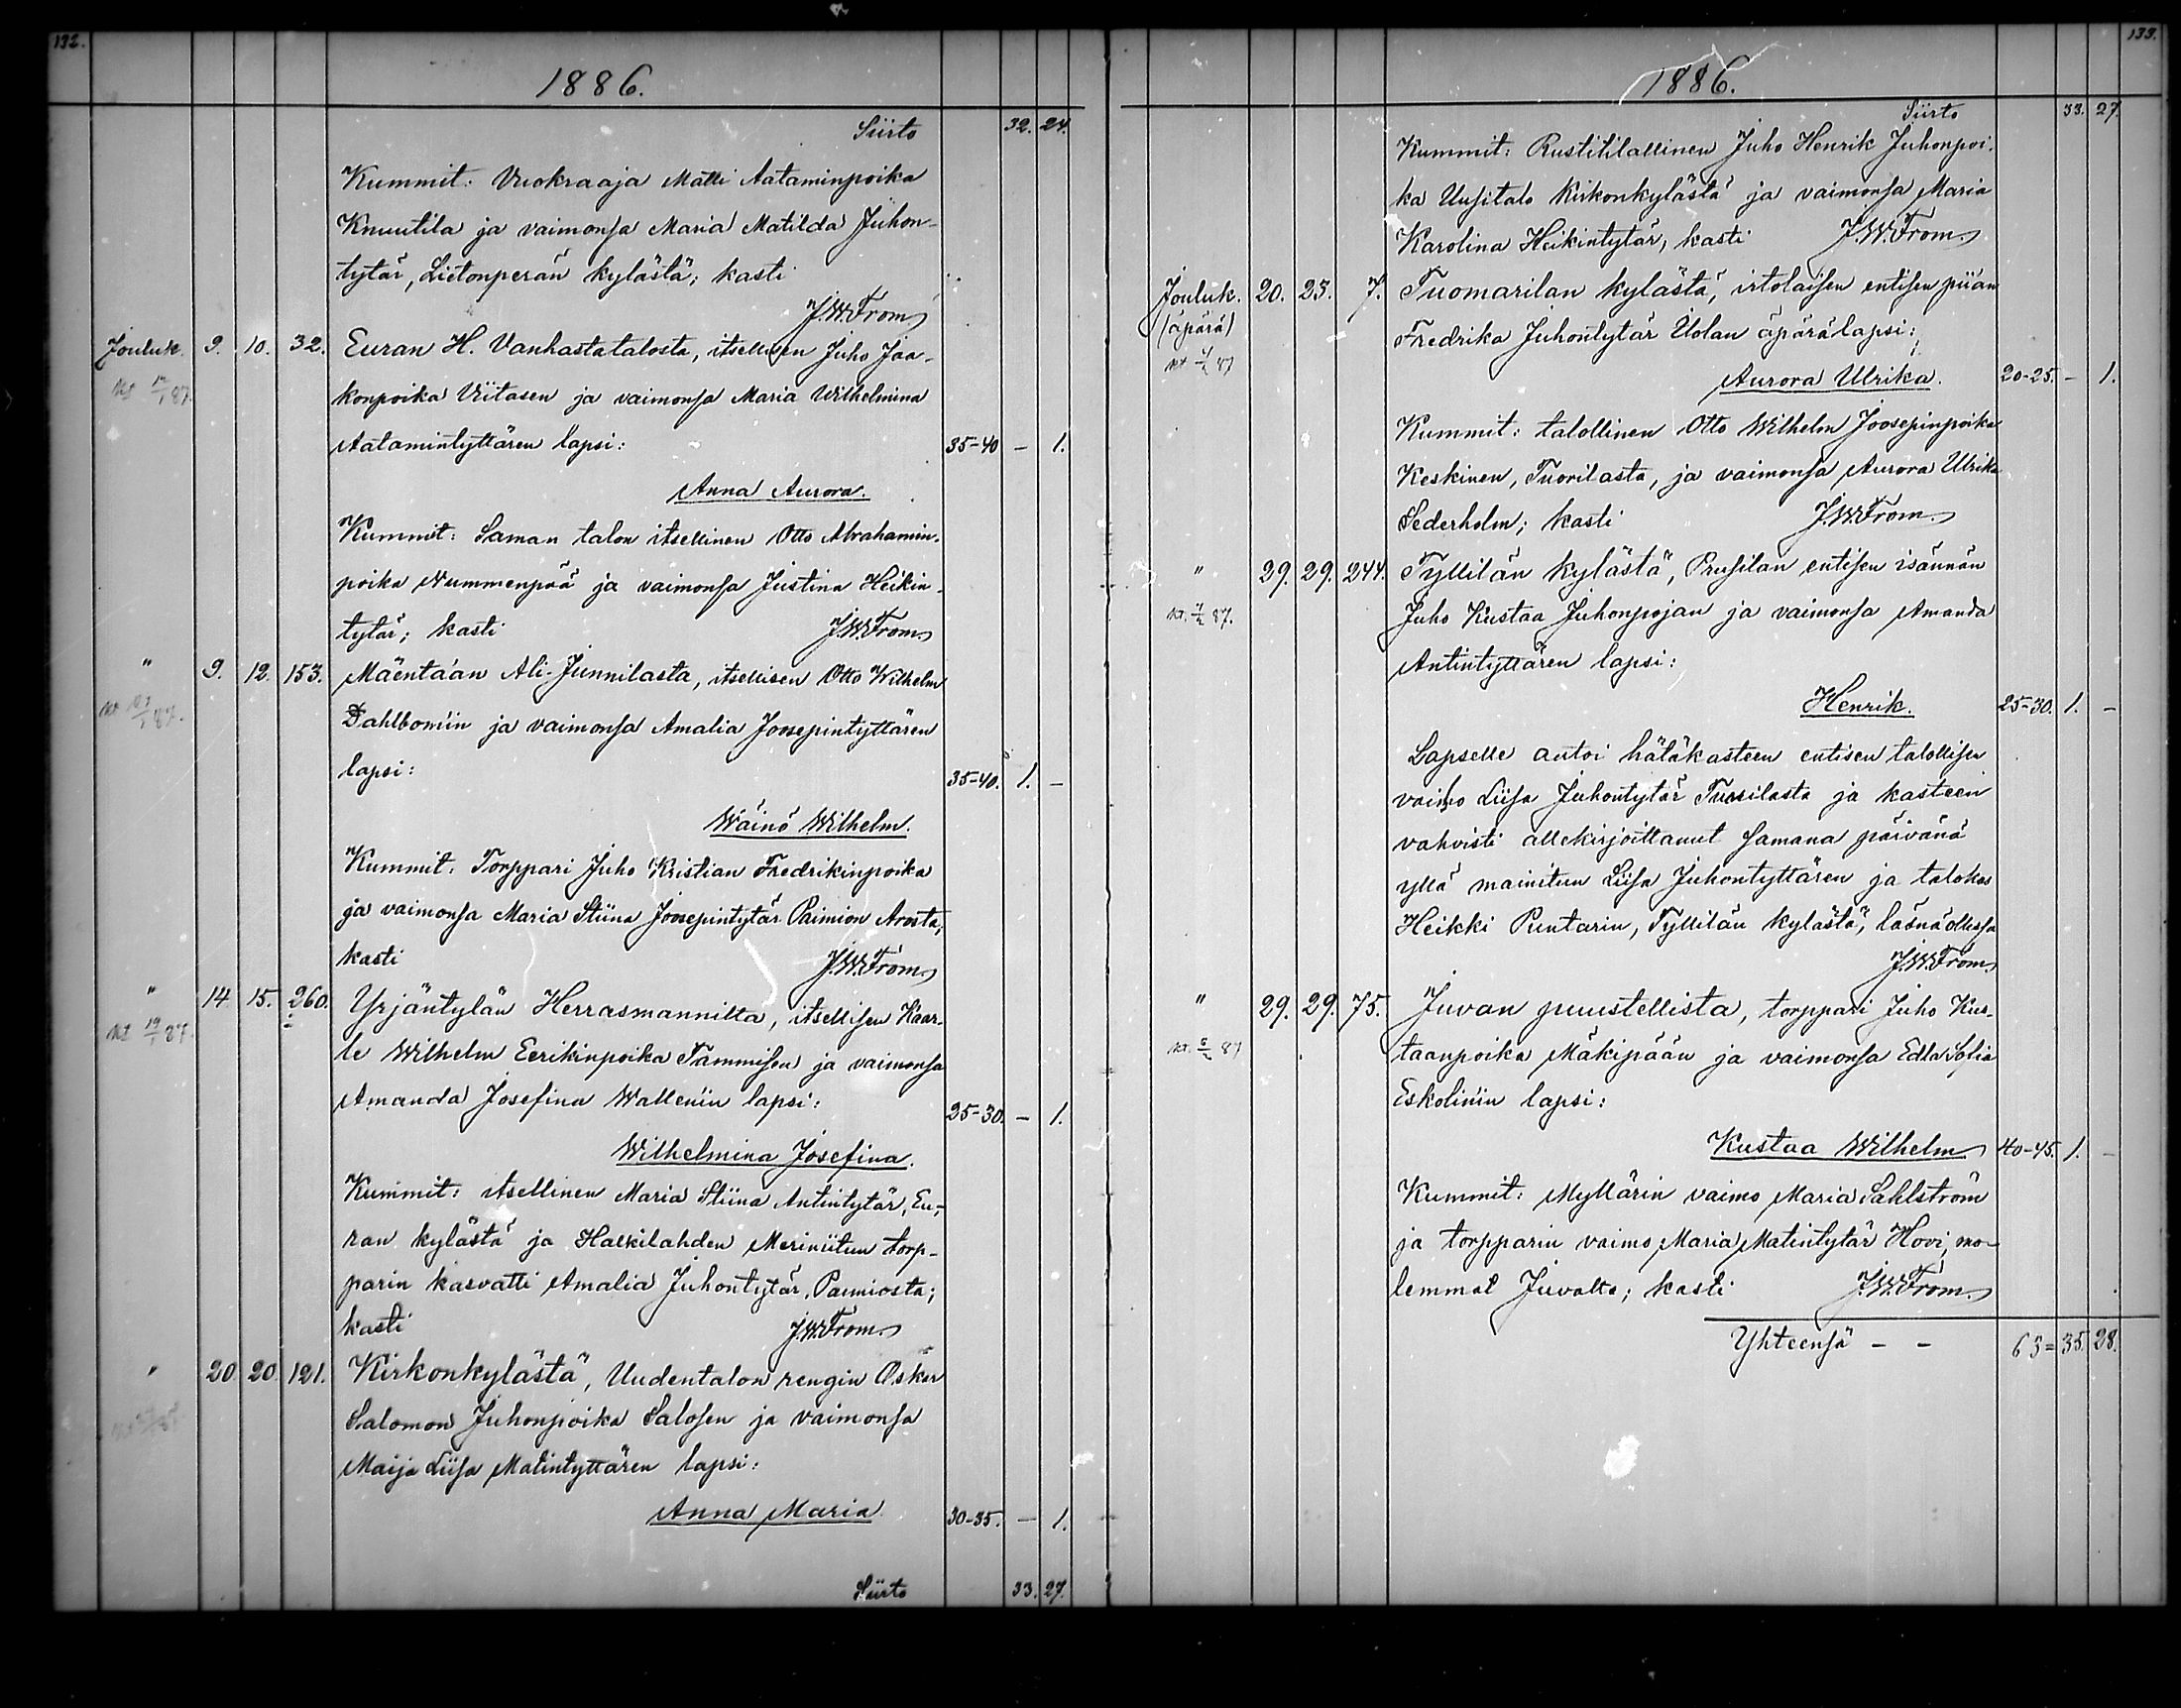 132.
1886.
Siirto 32. 24.
Kummit: Vuokraaja Matti Aataminpoika
Knuutila ja vaimonsa Maria Matilda Juhon-
tytär, Lietonperän kylästä; kasti
J.W.From.
Jouluk. 9. 10. 32. Euran H. Vanhastatalosta, itsellisen Juho Jaa-
konpoika Viitasen ja vaimonsa Maria Wilhelmina
Aatamintyttären lapsi: 35-40 - 1.
Anna Aurora.
Kummit: Saman talon itsellinen Otto Abrahamin-
poika Nummenpää ja vaimonsa Justina Heikin-
tytär; kasti J.W.From.
" 9. 12. 153. Mäentaan Ali-Junnilasta, itsellisen Otto Wilhelm
Dahlbomin ja vaimonsa Amalia Joosepintyttären
lapsi: 35-40. 1. -
Wäinö Wilhelm.
Kummit. Torppari Juho Kristian Fredrikinpoika
ja vaimonsa Maria Stiina Joosepintytär Paimion Arosta;
kasti J.W.From.
" 14. 15. 260. Yrjäntylän Herrasmannilta, itsellisen Kaar-
le Wilhelm Eerikinpoika Tammisen ja vaimonsa
Amanda Josefina Wallenin lapsi: 25-30. - 1.
Wilhelmina Josefina.
Kummit: itsellinen Maria Stiina Antintytär, Eu-
ran kylästä ja Halkilahden Meriniitun torp-
parin kasvatti Amalia Juhontytär, Paimiosta;
kasti J.W.From.
" 20. 20. 121. Kirkonkylästä, Uudentalon rengin Oskar
Salomon Juhonpoika Salosen ja vaimonsa
Maija Liisa Matintyttären lapsi:
Anna Maria. 30-35. - 1.
Siirto 33. 27.
133.
1886.
Siirto 33. 27.
Kummit: Rustitilallinen Juho Henrik Juhonpoi-
ka Uusitalo Kirkonkylästä ja vaimonsa Maria
Karolina Heikintytär, kasti J.W.From.
Jouluk. 20. 25. 7. Tuomarilan kylästä, irtolaisen entisen piian
(äpärä) Fredrika Juhontytär Uolan äpärälapsi:
Aurora Ulrika. 20-25. - 1.
Kummit: talollinen Otto Wilhelm Joosepinpoika
Keskinen, Tuorilasta, ja vaimonsa Aurora Ulrika
Sederholm; kasti J.W.From.
" 29. 29. 244. Tyllilän kylästä, Prusilan entisen isännän
Juho Kustaa Juhonpojan ja vaimonsa Amanda
Antintyttären lapsi:
Henrik. 25-30. 1. -
Lapselle antoi hätäkasteen entisen talollisen
vaimo Liisa Juhontytär Tuusilasta ja kasteen
vahvisti allekirjoittanut samana päivänä
yllä mainitun Liisa Juhontyttären ja talokas
Heikki Puntarin, Tyllilän kylästä, läsnäollessa
J.W.From.
" 29. 29. 75. Juvan puustellista, torppari Juho Kus-
taanpoika Mäkipään ja vaimonsa Edla Sofia
Eskolinin lapsi:
Kustaa Wilhelm 40-45. 1. -
Kummit: Myllärin vaimo Maria Sahlström
ja torpparin vaimo Maria Matintytär Hovi, mo-
lemmat Juvalta; kasti J.W.From.
Yhteensä - - 63= 35. 28.